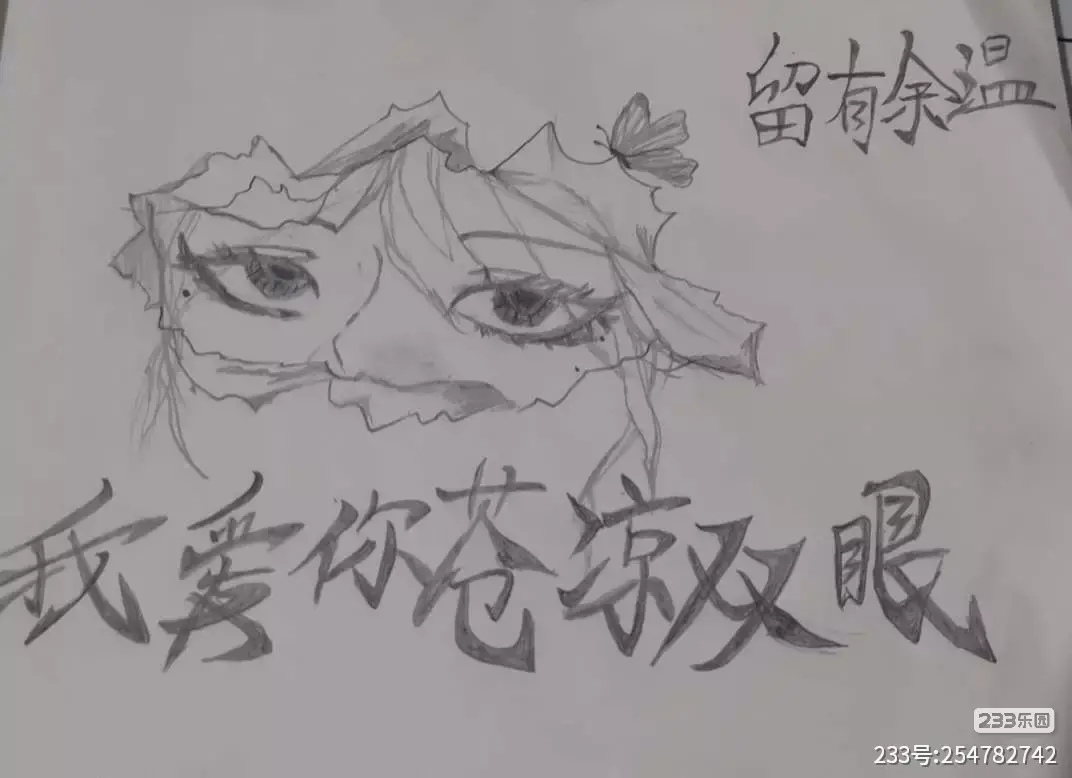 留有余温
我爱你苍凉双眼
233乐园
233号:254782742